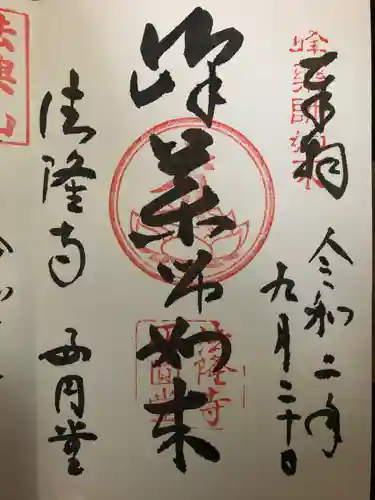 奉拝
峰薬師如来
令和二年
九月二十日
峰薬師如来
法隆寺
西円堂
法隆寺 西円堂
法興山